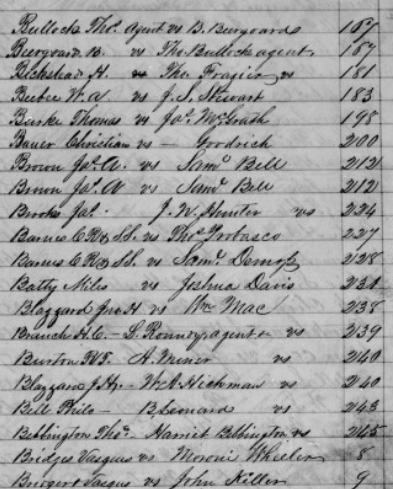 Bullock Thos. Agent vs B. Beergoard 167
Beergoard B. vs Tho. Bullock agent. 167
Bickstead H. vs Tho. Frazier vs 181
Beebee W. A vs J. S. Stewart 183
Burke Thomas vs Jas. McGrath 198
Bauer Christian vs — Goodrich 200
Brown Jas. A. vs Saml Bell 212
Brown Jas. A vs Saml Bell 212
Brooks Jas. J. W. Hunter vs 224
Barnes C R & SS. vs Thos 227
Barnes C R & SS. vs Saml. 228
Batty Miles vs Joshua Davis 231
Blazzard Jno. H. vs Wm Mac 238
Branch H. C. — L. agent vs 239
Burton H. Miner vs 240
Blazzard J. H. — W. A. Hickman vs 240
Bell Philo — B. Leonard vs 243
Bibbington Thos. Harriet Bibbington vs 245
Bridges Vasques vs Moroni Wheeler 8
Bridger & Vasques vs John Killer 9